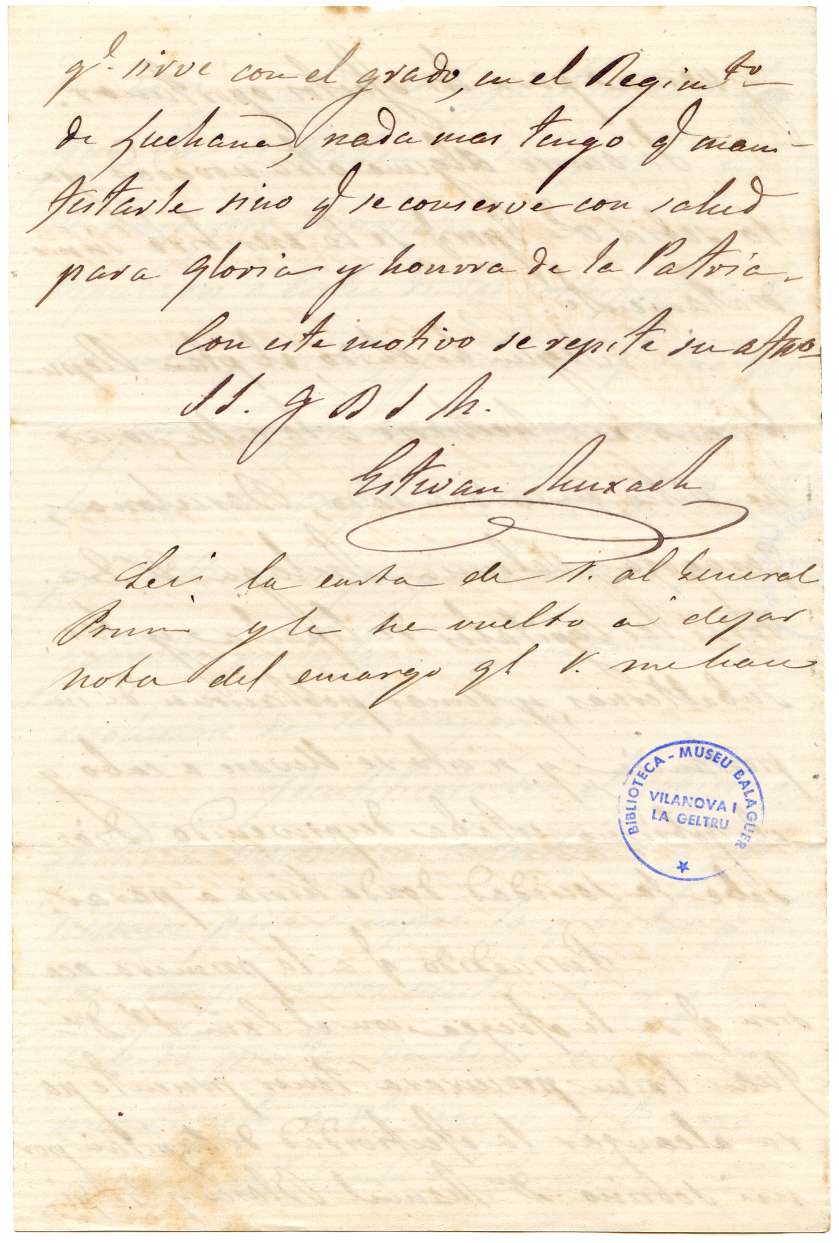 qe. sirve con el grado, en el Regimto
de Luchana, nada mas tengo q mani-
festarle sino q se conserve con salud
para gloria y honrra de la Patria.
Con este motivo se repite su afmo
S S. q B S M.
Estevan
Lei la carta de V. al General
Prim y le he vuelto a dejar
nota del encargo qe V. me hace
BIBLIOTECA - MUSEU BALAGUER
VILANOVA I
LA GELTRU